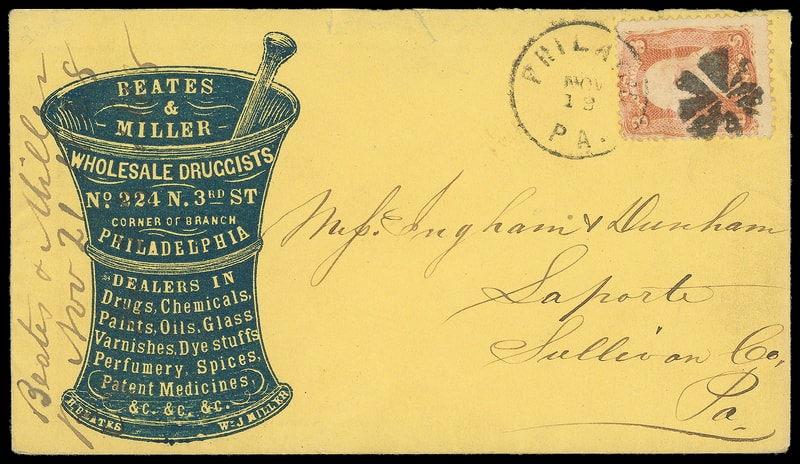 BEATES
&
MILLER
WHOLESALE DRUGGISTS
No. 224 N. 3RD ST
CORNER OF BRANCH
PHILADELPHIA
DEALERS IN
Drugs, Chemicals,
Paints, Oils, Glass
Varnishes, Dye stuffs
Perfumery, Spices,
Patent Medicines,
&c. &c. &c.
H. BEATES Wm. J. MILLER
Beates & Miller
Nov 21
PHILA
NOV
18
PA.
3
Mess. Ingham & Dunham
Laporte
Sullivan Co,
Pa